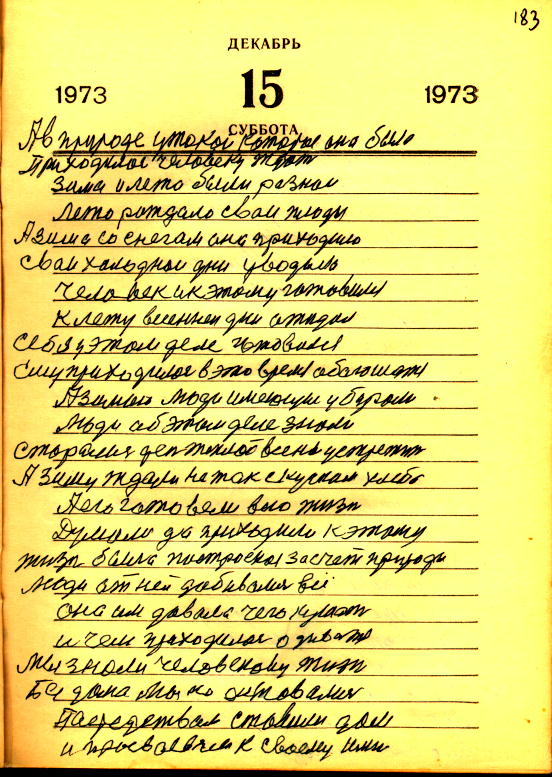 183
ДЕКАБРЬ
1973 15 1973
СУББОТА
А в природе у такой которое она было
Приходилос человеку ждат
Зима и лето были разнои
Лето рождало сваи плоды
А зима со снегам она приходило
Сваи холоднои дни уводило
Человек и к этому готовился
К лету весеннеи дни
Себя у этом деле готовился
приходилос в это время
А зимои люди имеющие убирали
Люди об этом деле знали
Старалися деп теплои весны устретит
А зиму ждали не так скусном хлебо
А его готовели всю жизн
Думали да приходили к этому
жизн была построеноя за счёт природы
Люди от ней добывался всё
она им давала чего кушат
и чем приходилос одиват
Мы знали человекову жизн
Без дома мы не оставалися
Пасредствам ставили дом
и к своему ими